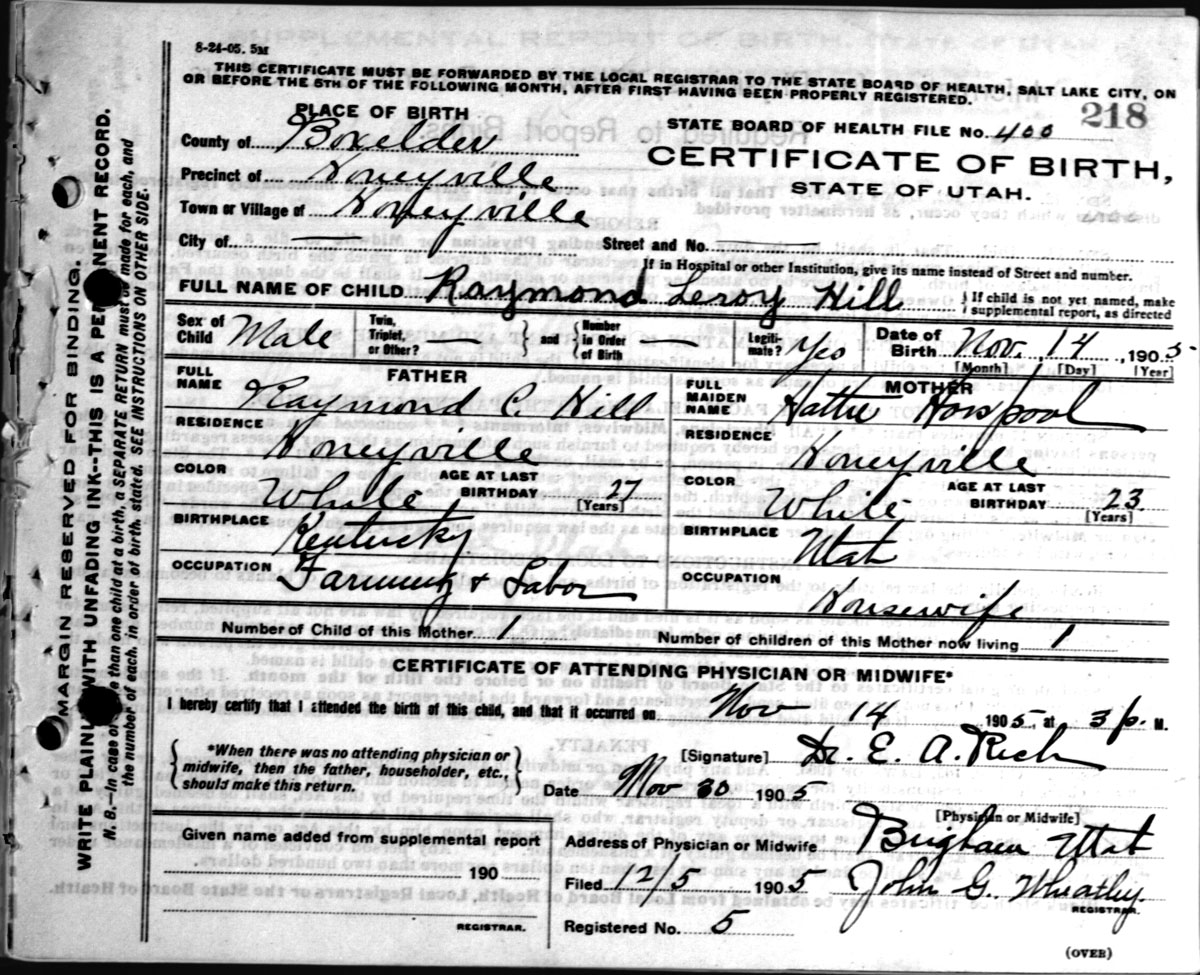 8-24-05. 5M
THIS CERTIFICATE MUST BE FORWARDED BY THE LOCAL REGISTRAR TO THE STATE BOARD OF HEALTH, SALT LAKE CITY, ON
OR BEFORE THE 5TH OF THE FOLLOWING MONTH, AFTER FIRST HAVING BEEN PROPERLY REGISTERED.
218
PLACE OF BIRTH
STATE BOARD OF HEALTH FILE No. 400
County of Boxelder
CERTIFICATE OF BIRTH,
STATE OF UTAH.
Precinct of Honeyville
Town or Village of Honeyville
City of — Street and No. —
If in Hospital or other Institution, give its name instead of Street and number.
FULL NAME OF CHILD Raymond Leroy Hill } If child is not yet named, make supplemental report, as directed
Sex of Child Male Twin, Triplet, or Other? — } and { Number in Order of Birth Legiti-mate? Yes Date of Birth Nov. 14, 1905
[Month] [Day] [Year]
FATHER
FULL NAME Raymond C. Hill
RESIDENCE Honeyville
COLOR White AGE AT LAST BIRTHDAY 27
[Years]
BIRTHPLACE Kentucky
OCCUPATION Farming & Labor
MOTHER
FULL MAIDEN NAME Hattie Horspool
RESIDENCE Honeyville
COLOR White AGE AT LAST BIRTHDAY 23
[Years]
BIRTHPLACE Utah
OCCUPATION Housewife
Number of Child of this Mother 1 Number of children of this Mother now living 1
CERTIFICATE OF ATTENDING PHYSICIAN OR MIDWIFE*
I hereby certify that I attended the birth of this child, and that it occurred on Nov 14 1905, at 3 p. M.
{ *When there was no attending physician or
midwife, then the father, householder, etc.,
should make this return. }
[Signature] Dr. E. A. Rich
Date Nov 30 1905
[Physician or Midwife]
Given name added from supplemental report
190
REGISTRAR.
Address of Physician or Midwife Brigham Utah
Filed 12/5 1905 John G. Wheatley.
REGISTRAR.
Registered No. 5
(OVER)
MARGIN RESERVED FOR BINDING.
WRITE PLAINLY WITH UNFADING INK--THIS IS A PERMANENT RECORD.
N. B.—In case of more than one child at a birth, a SEPARATE RETURN must be made for each, and
the number of each, in order of birth, stated. SEE INSTRUCTIONS ON OTHER SIDE.